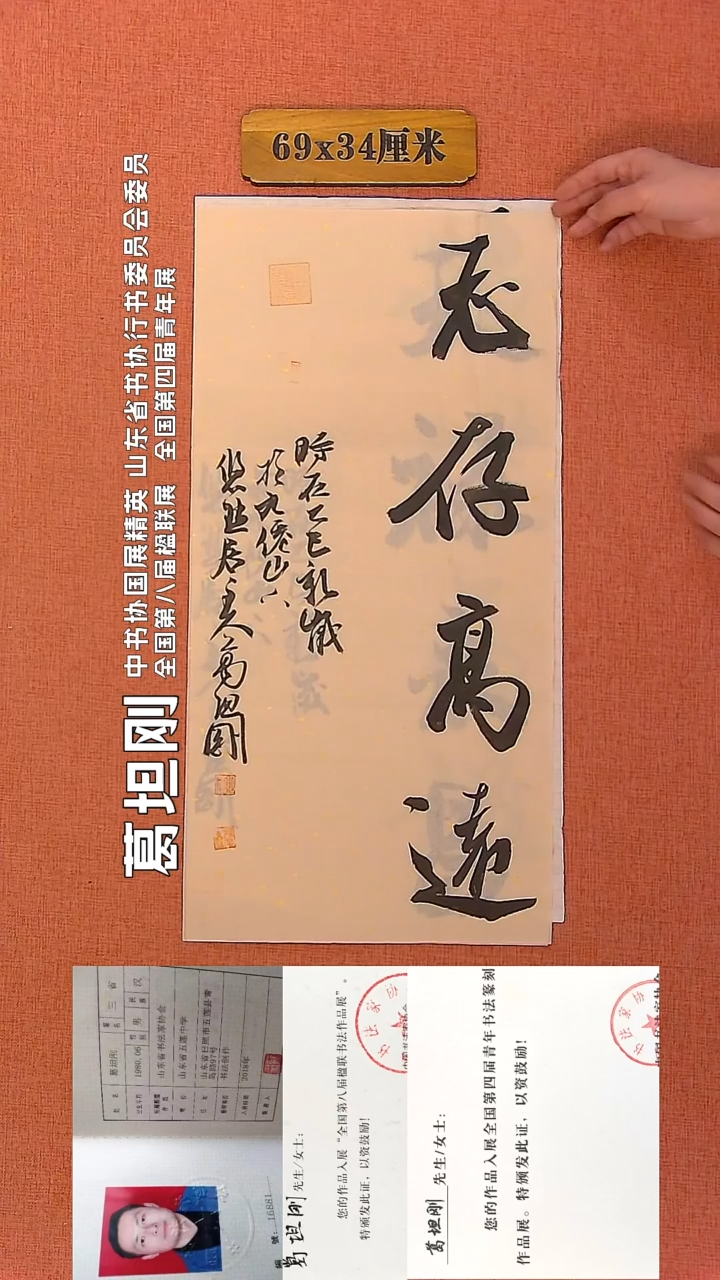 69x34厘米
志存高遠
時在乙巳初歲
於九僊山下
悠然居主人葛坦剛
葛坦刚
中书协国展精英 山东省书协行书委员会委员
全国第八届楹联展 全国第四届青年展
葛坦刚
男
汉
1980.06
山东省书法家协会
山东省五莲中学
书法创作
2018年
號：16881
葛坦刚 先生/女士：
您的作品入展“全国第八届楹联书法作品展”。
特颁发此证，以资鼓励！
葛坦刚 先生/女士：
您的作品入展全国第四届青年书法篆刻
作品展。特颁发此证，以资鼓励！